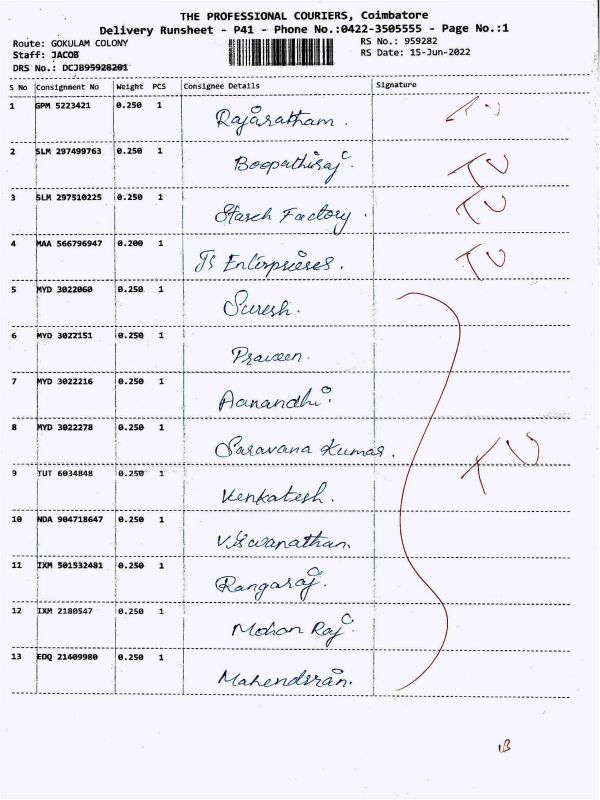 THE PROFESSIONAL COURIERS, Coimbatore
Delivery Runsheet - P41 - Phone No.:0422-3505555 - Page No.:1
Route: GOKULAM COLONY RS No.: 959282
Staff: JACOB RS Date: 15-Jun-2022
DRS No.: DCJB95928201
S No Consignment No Weight PCS Consignee Details Signature
1 GPM 5223421 0.250 1 Rajaratham. TU
2 SLM 297499763 0.250 1 Boopathiraj. TU
3 SLM 297510225 0.250 1 Starch Factory. TU
4 MAA 566796947 0.200 1 Js Enterprises. TU
5 MYD 3022060 0.250 1 Suresh.
6 MYD 3022151 0.250 1 Praveen.
7 MYD 3022216 0.250 1 Aanandhi.
8 MYD 3022278 0.250 1 Saravana Kumar. TU
9 TUT 6034848 0.250 1 Venkatesh.
10 NDA 904718647 0.250 1 Viswanathan.
11 IXM 501532481 0.250 1 Rangaraj.
12 IXM 2180547 0.250 1 Mohan Raj.
13 EDQ 21409980 0.250 1 Mahendiran.
13